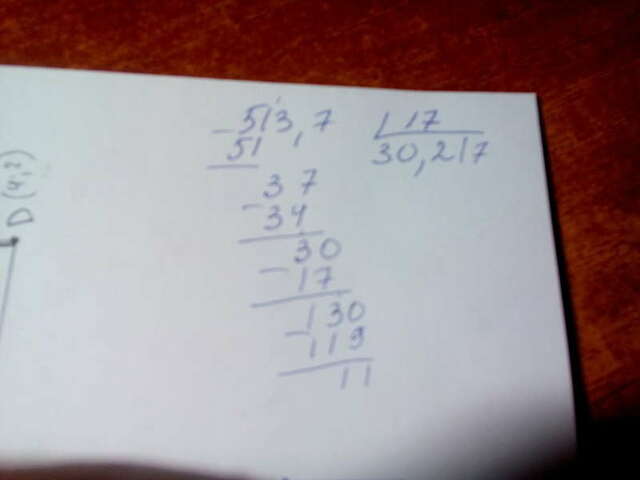 513,7 17
51 30,217
37
34
30
17
130
119
11
D(4;2)